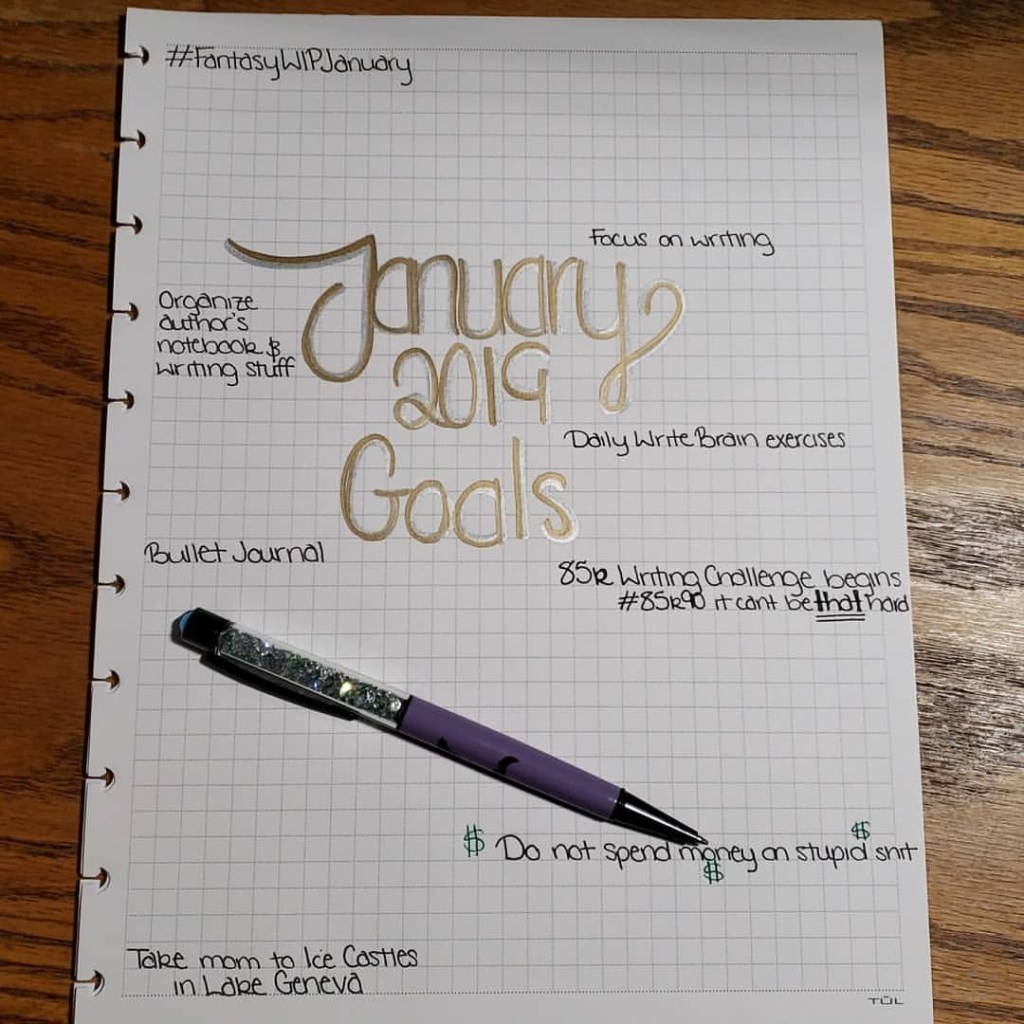 #FantasyWIPJanuary
Focus on writing
January
2019
Goals
Organize
author's
notebook &
writing stuff
Daily Write Brain exercises
Bullet Journal
85k Writing Challenge begins
#85k90 it cant be that hard
$ $ $
Do not spend money on stupid shit
Take mom to Ice Castles
in Lake Geneva
TUL